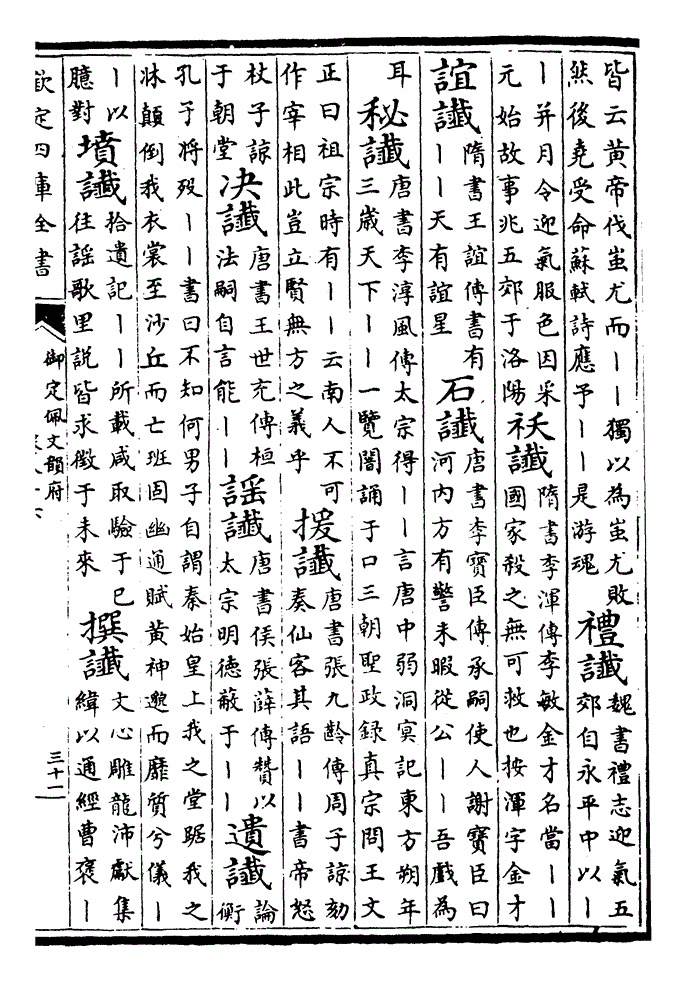 皆云黄帝伐蚩尤而丨丨獨以為蚩尤敗
然後堯受命蘇軾詩應予丨丨是游魂
禮讖
魏書禮志迎氣五
郊自永平中以丨
丨并月令迎氣服色因采
元始故事兆五郊于洛陽
祅讖
隋書李渾傳李敏金才名當丨丨
國家殺之無可救也按渾字金才
誼讖
隋書王誼傳書有
丨丨天有誼星
石讖
唐書李寶臣傳承嗣使人謝寶臣曰
河内方有警未暇從公丨丨吾戲為
耳
秘讖
唐書李淳風傳太宗得丨丨言唐中弱洞冥記東方朔年
三歲天下丨丨一覽闇誦于口三朝聖政録真宗問王文
正曰祖宗時有丨丨云南人不可
作宰相此豈立賢無方之義乎
援讖
唐書張九齡傳周子諒劾
奏仙客其語丨丨書帝怒
杖子諒
于朝堂
决讖
唐書王世充傳桓
法嗣自言能丨丨
謡讖
唐書侯張薛傳贊以
太宗明德蔽于丨丨
遺讖
論
衡
孔子將殁丨丨書曰不知何男子自謂秦始皇上我之堂踞我之
牀顛倒我衣裳至沙丘而亡班固幽通賦黄神邈而靡質兮儀丨
丨以
臆對
墳讖
拾遺記丨丨所載咸取驗于已
往謡歌里説皆求徵于未來
撰讖
文心雕龍沛獻集
緯以通經曹褒丨
欽定四庫全書
御定佩文韻府
三十一